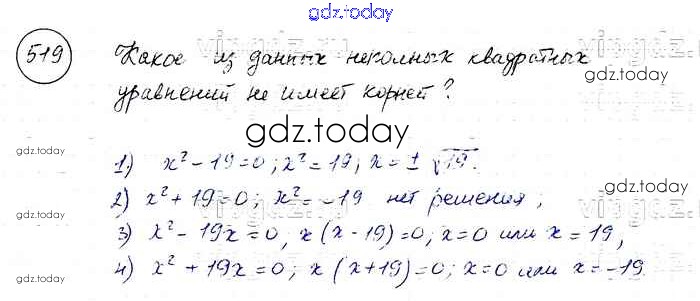 gdz.today
519
Какое из данных неполных квадратных
уравнений не имеет корней?
gdz.today
gdz.today
gdz.today
1) x² - 19 = 0; x² = 19; x = ± √19.
2) x² + 19 = 0; x² = -19 нет решения;
gdz.today
3) x² - 19x = 0, x(x - 19) = 0; x = 0 или x = 19,
gdz.today
4) x² + 19x = 0; x(x + 19) = 0; x = 0 или x = -19
gdz.today